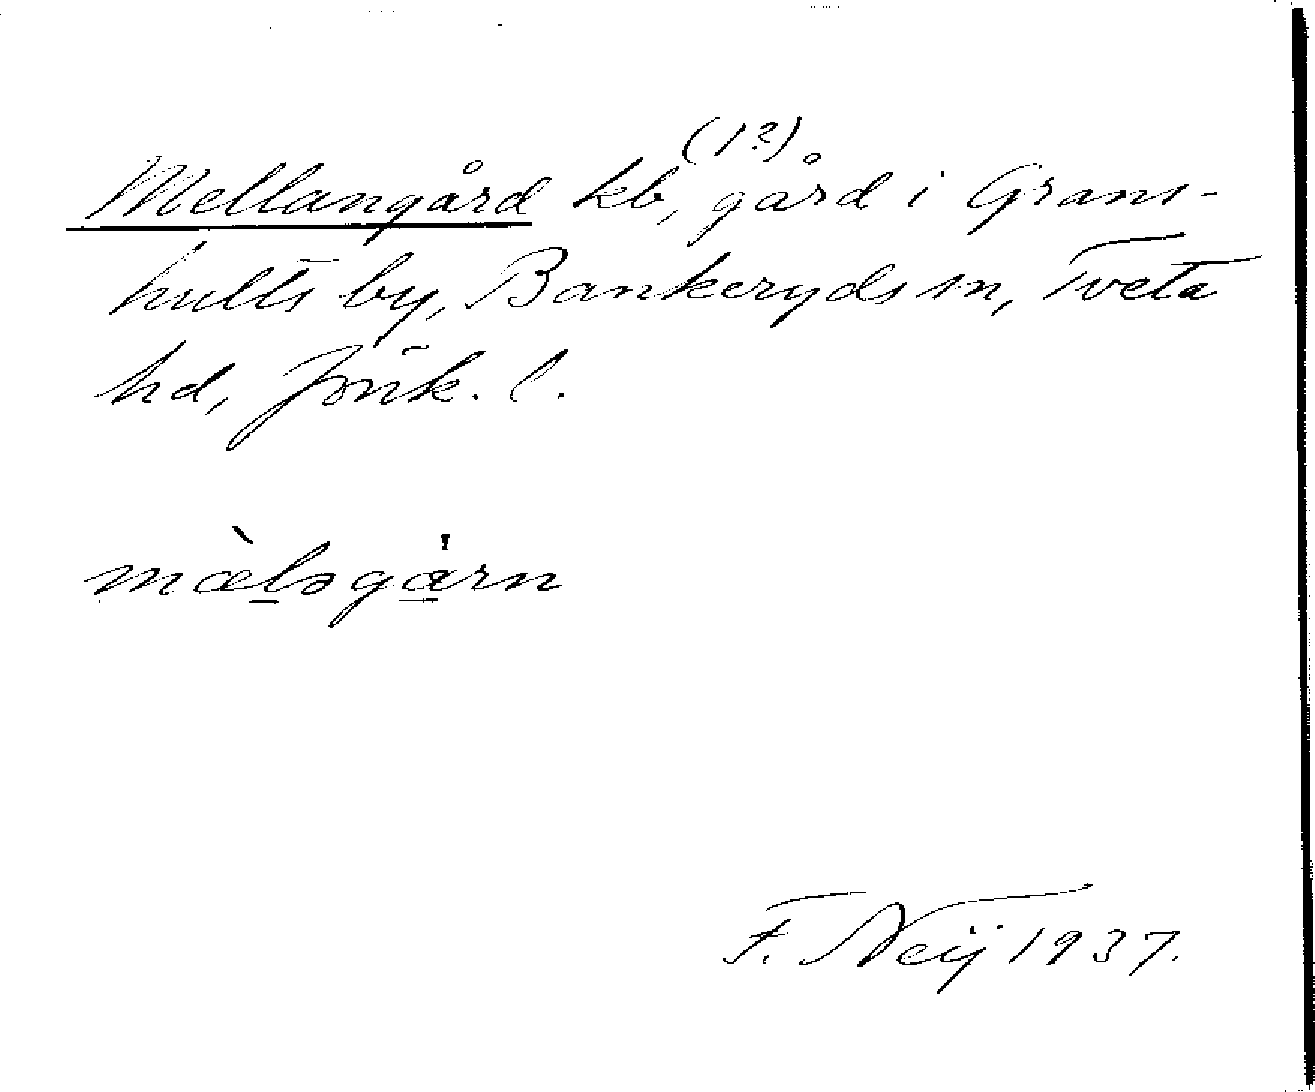 Mellangård kb, (1?) gård i Grans-
hults by, Bankeryds sn, Tveta
hd, Jönk. l.
mæ̀lsgȧrn
F. Neij 1937.